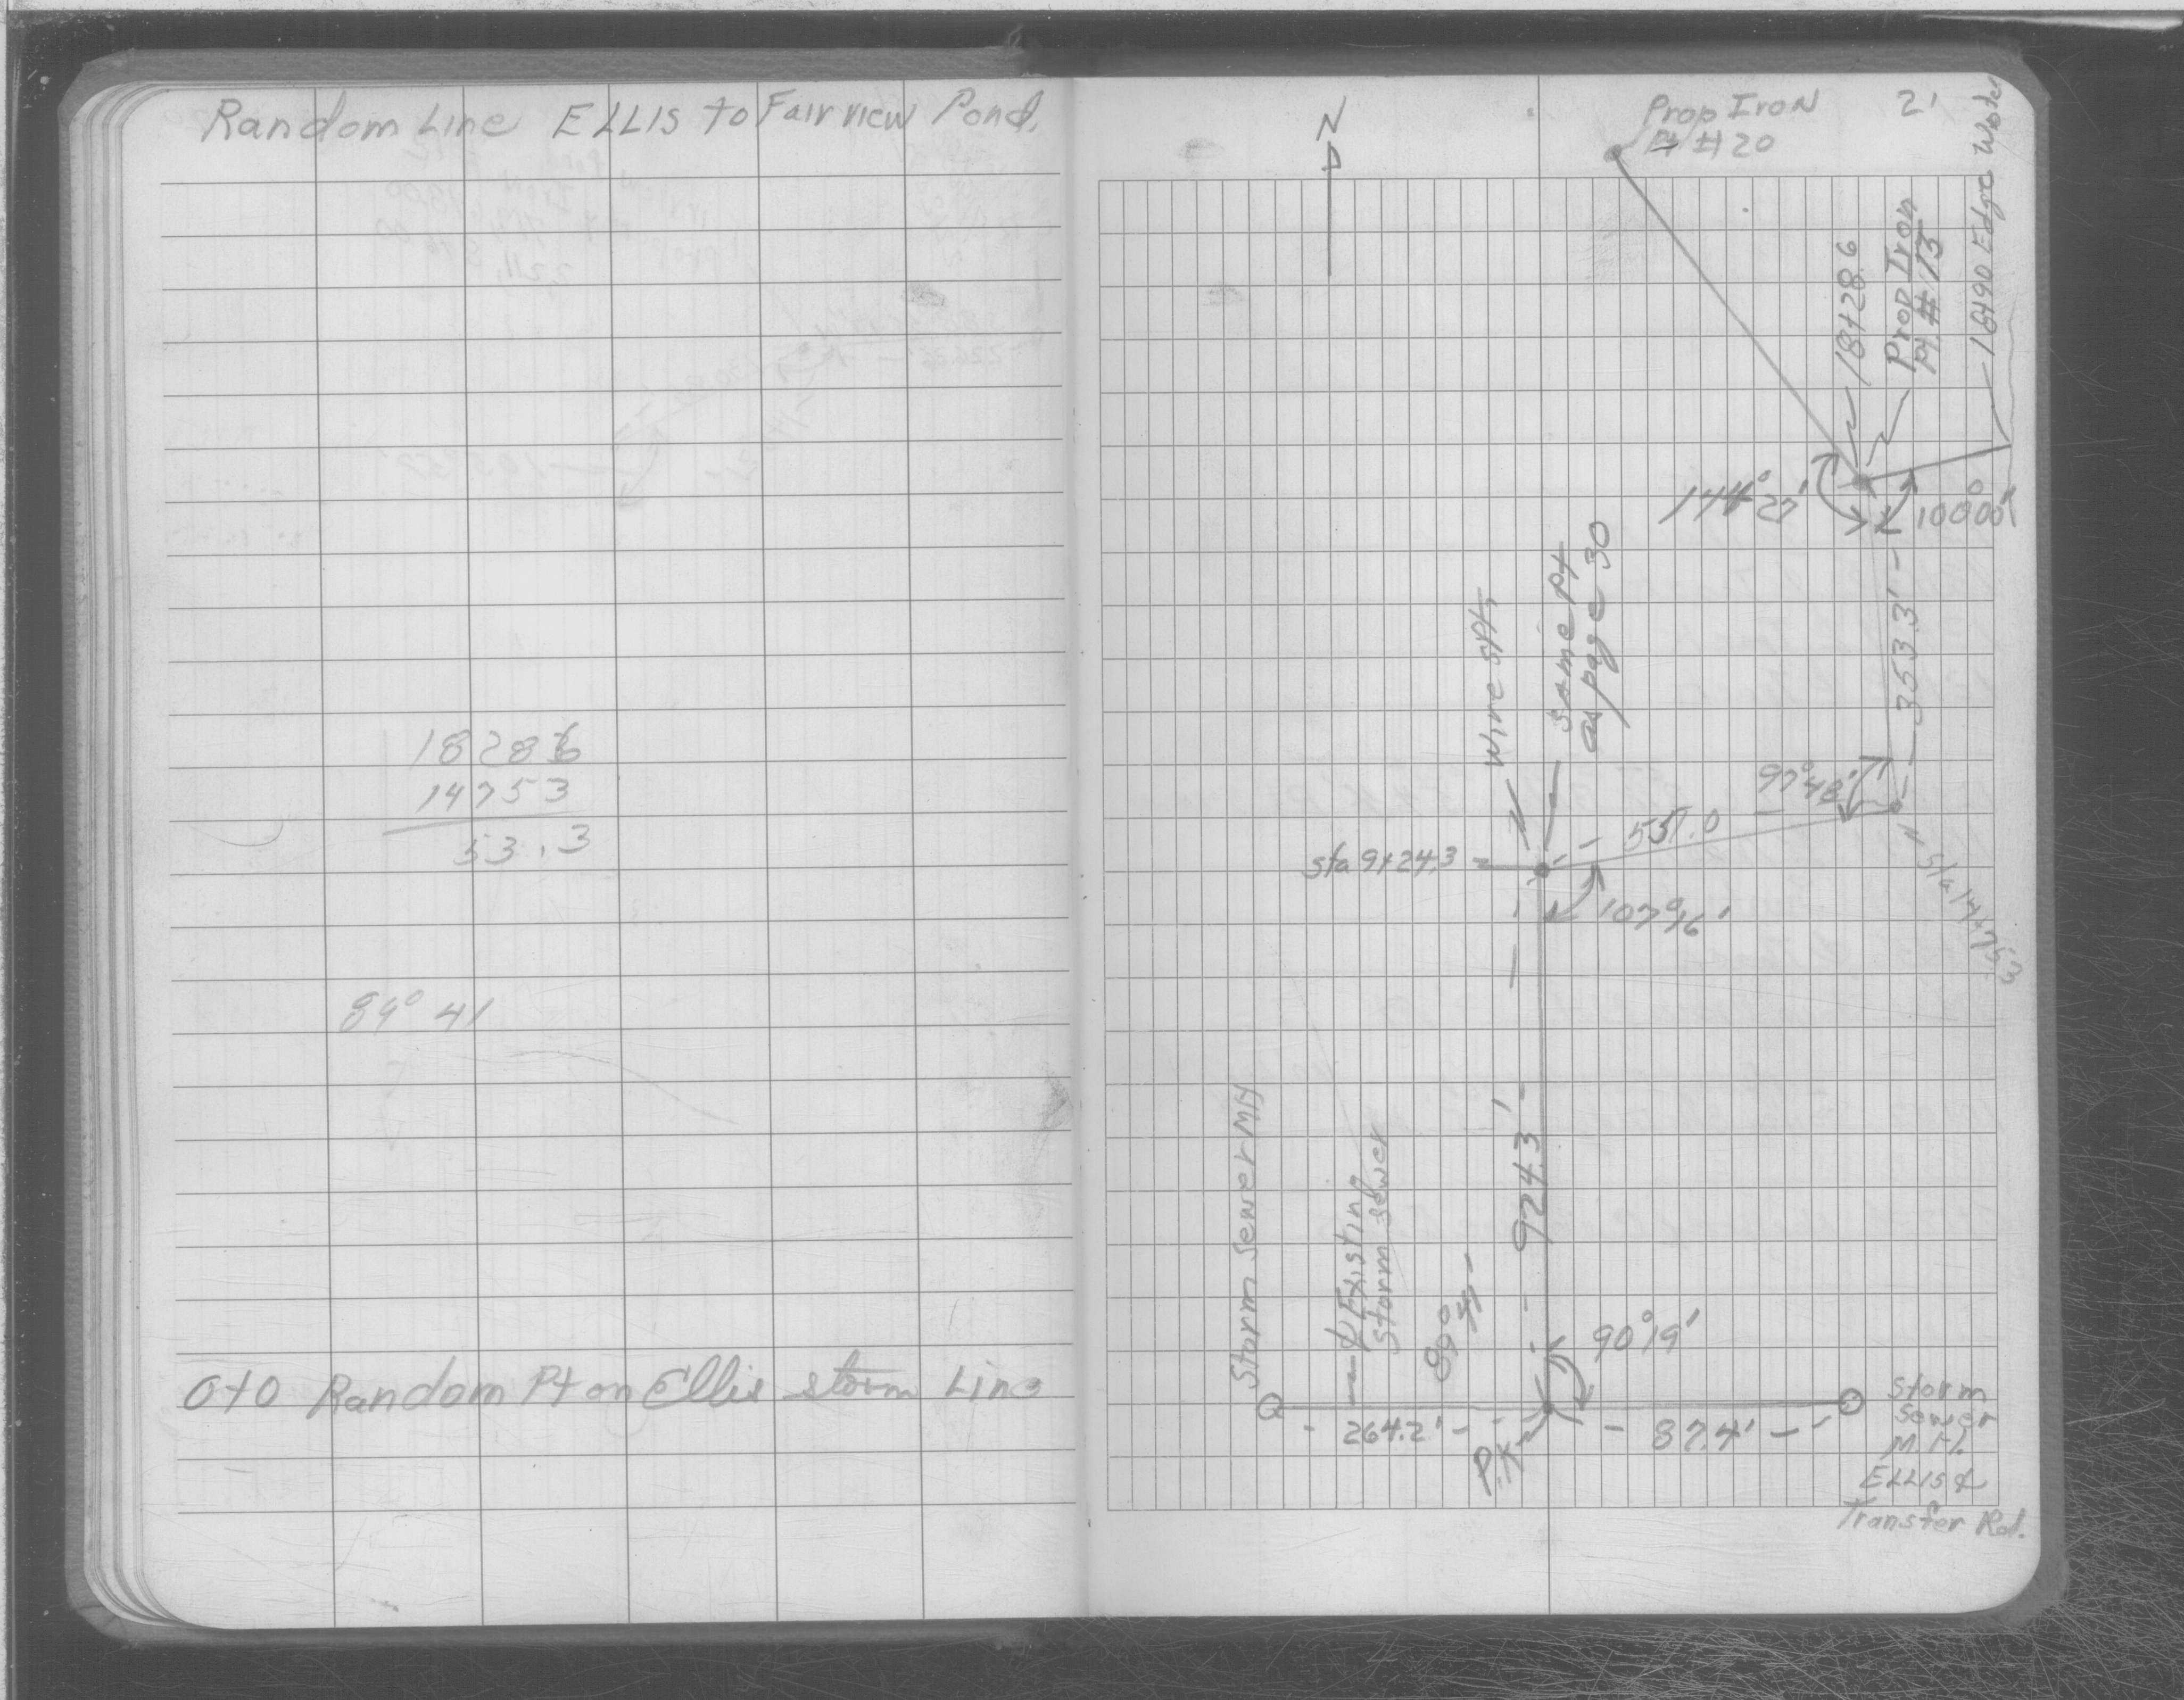 Random Line ELLIS to Fairview Pond.
18286
14753
53.3
89° 41
0+0 Random Pt on Ellis storm Line
N
Prop Iron
Pt #20
21
18+28.6
Prop Iron
Pt #13
18+90 Edge Water
144° 27'
100°00'
353.3'
Same Pt
as page 30
97°48'
551.0
Sta 9+24.3
107°16'
Sta 14+75.3
924.3'
Storm Sewer MH
Existing
Storm Sewer
89°41
90°19'
264.2'
P.K
87.4'
Storm
Sewer
M.H.
ELLIS &
Transfer Rd.